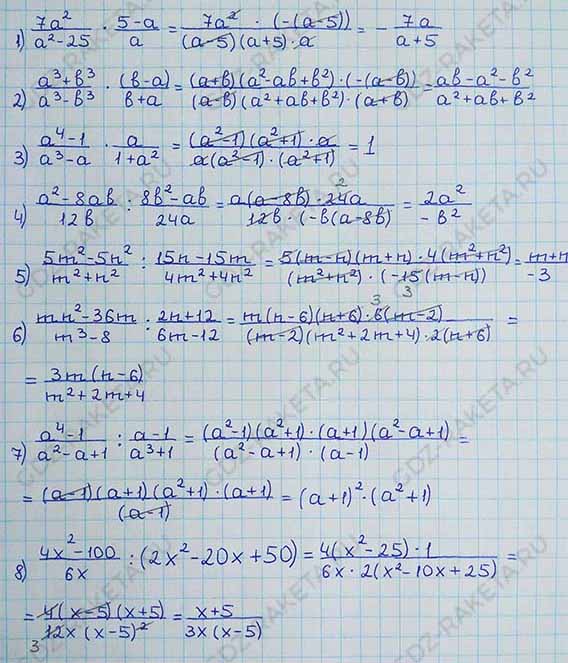 1) 7a²/(a²-25) · (5-a)/a = (7a² · (-(a-5)))/((a-5)(a+5)·a) = - 7a/(a+5)
2) (a³+b³)/(a³-b³) · (b-a)/(b+a) = ((a+b)(a²-ab+b²)·(-(a-b)))/((a-b)(a²+ab+b²)·(a+b)) = (ab-a²-b²)/(a²+ab+b²)
3) (a⁴-1)/(a³-a) · a/(1+a²) = ((a²-1)(a²+1)·a)/(a(a²-1)·(a²+1)) = 1
4) (a²-8ab)/12b : (8b²-ab)/24a = (a(a-8b)·24a)/(12b·(-b(a-8b)) = 2a²/-b²
2
5) (5m²-5n²)/(m²+n²) : (15n-15m)/(4m²+4n²) = (5(m-n)(m+n)·4(m²+n²))/((m²+n²)·(-15(m-n))) = (m+n)/-3
3
6) (mn²-36m)/(m³-8) : (2n+12)/(6m-12) = (m(n-6)(n+6)·6(m-2))/((m-2)(m²+2m+4)·2(n+6)) =
3
= 3m(n-6)/(m²+2m+4)
7) (a⁴-1)/(a²-a+1) : (a-1)/(a³+1) = ((a²-1)(a²+1)·(a+1)(a²-a+1))/((a²-a+1)·(a-1)) =
= ((a-1)(a+1)(a²+1)·(a+1))/(a-1) = (a+1)²·(a²+1)
8) (4x²-100)/6x : (2x²-20x+50) = (4(x²-25)·1)/(6x·2(x²-10x+25)) =
= (4(x-5)(x+5))/(12x(x-5)²) = (x+5)/(3x(x-5))
3
GDZ-RAKETA.RU